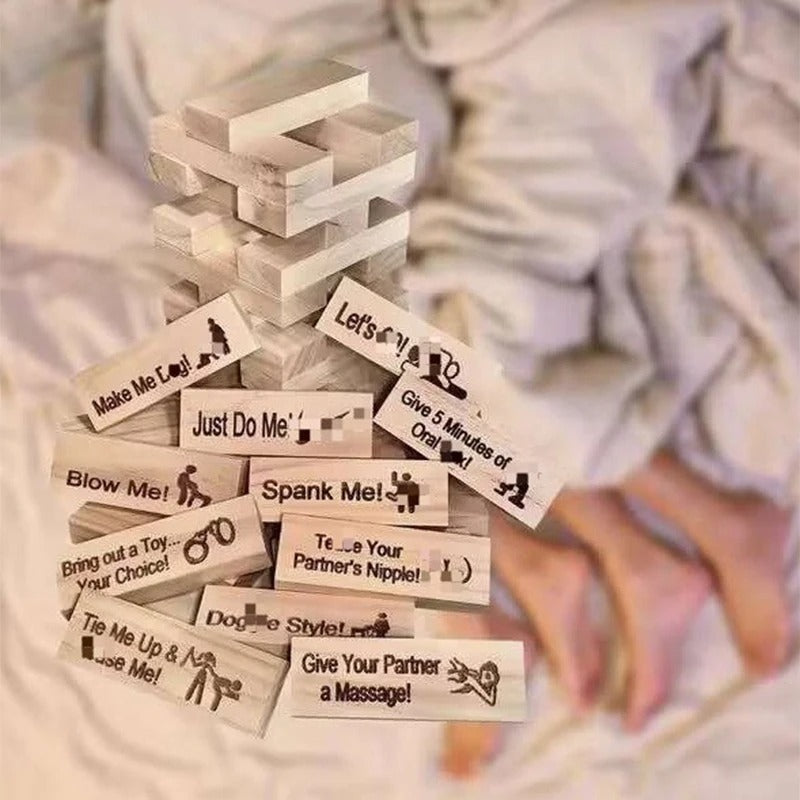 Make Me
Let's
Just Do Me!
Give 5 Minutes of
Blow Me!
Spank Me!
Bring out a Toy...
Your Choice!
Your
Partner's Nipple!
Style!
Tie Me Up &
Me!
Give Your Partner
a Massage!